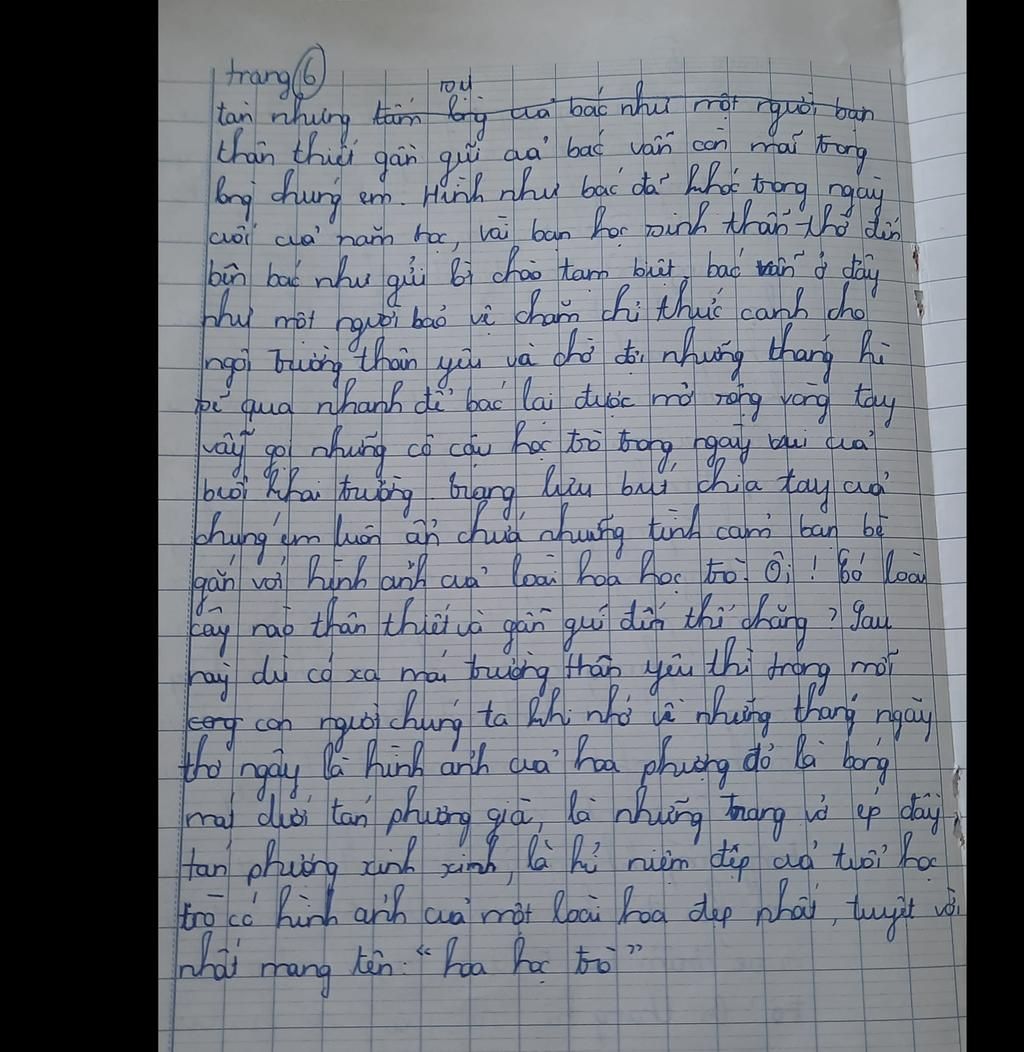 trang 6
tàn nhưng tấm lòng của bác như một người bạn
thân thiết gần gũi của bác vẫn còn mãi trong
lòng chúng em. Hình như bác đã khóc trong ngày
cuối của năm học, vài bạn học sinh thẩn thơ đến
bên bác như gửi lời chào tạm biệt, bác vẫn ở đây
như một người bảo vệ chăm chỉ thức canh cho
ngôi trường thân yêu và chờ đợi những tháng hè
qua nhanh để bác lại được mở rộng vòng tay
vẫy gọi những cô cậu học trò trong ngày vui của
buổi khai trường. trang lưu bút chia tay của
chúng em luôn ẩn chứa những tình cảm bạn bè
gắn với hình ảnh của loài hoa học trò. Ôi! Có loài
cây nào thân thiết và gần gũi đến thế chăng? Sau
này dù có xa mái trường thân yêu thì trong mỗi
con người chúng ta khi nhớ về những tháng ngày
thơ ngây là hình ảnh của hoa phượng đỏ là bóng
mát dưới tán phượng già, là những trang vở ép đầy
tán phượng xinh xinh, là kỉ niệm đẹp của tuổi học
trò có hình ảnh của một loài hoa đẹp nhất, tuyệt vời
nhất mang tên "hoa học trò"